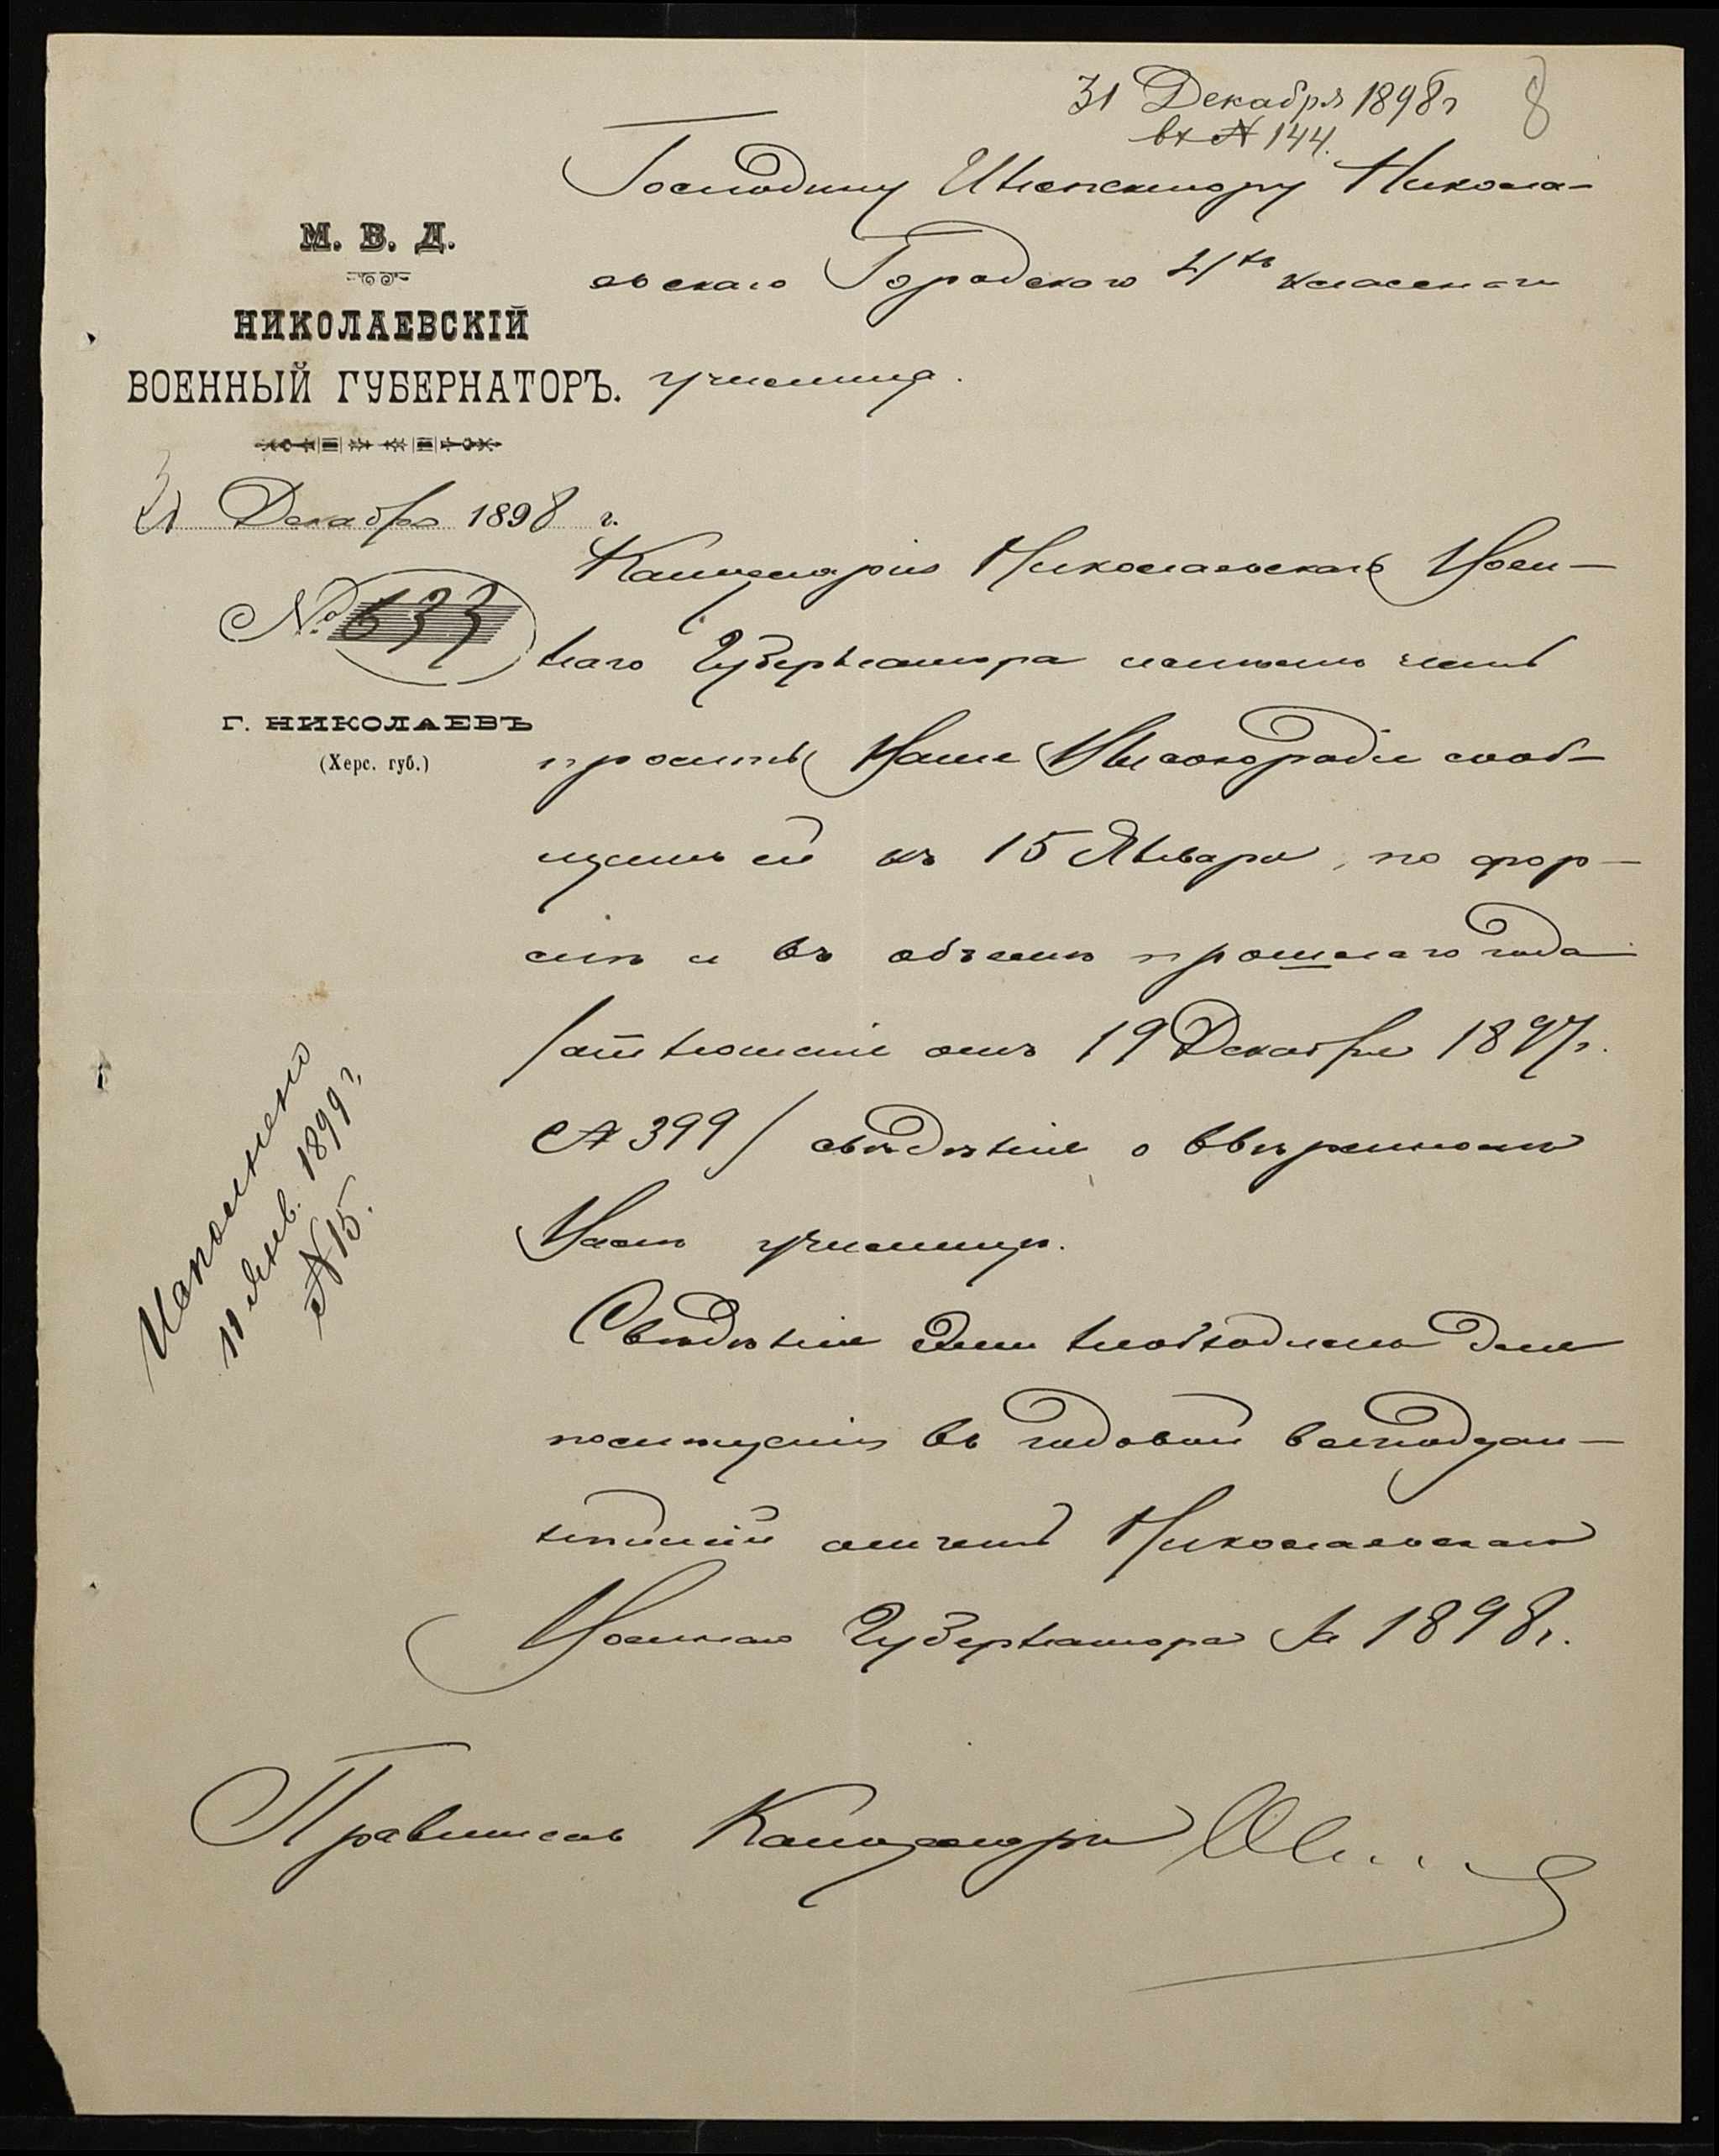 31 Декабря 1898 г
вх № 144.
8
Господину Инспектору Никола-
евскаго Городского 4хъ класснаго
училища.
М. В. Д.
НИКОЛАЕВСКІЙ
ВОЕННЫЙ ГУБЕРНАТОРЪ.
31 Декабря 1898 г.
№ 633
Г. НИКОЛАЕВЪ
(Херс. губ.)
Канцелярія Николаевскаго Воен-
наго Губернатора имѣетъ честь
просить Ваше Высокородіе сооб-
щить ей къ 15 Января, по фор-
мѣ и въ объемѣ прошлаго года
/отношеніе отъ 19 Декабря 1897 г.
№ 399/ свѣдѣнія о ввѣренномъ
Вамъ училищѣ.
Свѣдѣнія эти необходимы для
помѣщенія въ годовой всеподдан-
нѣйшій отчетъ Николаевскаго
Военнаго Губернатора за 1898 г.
Исполнено
11 Янв. 1899 г.
№ 15.
Правитель Канцеляріи